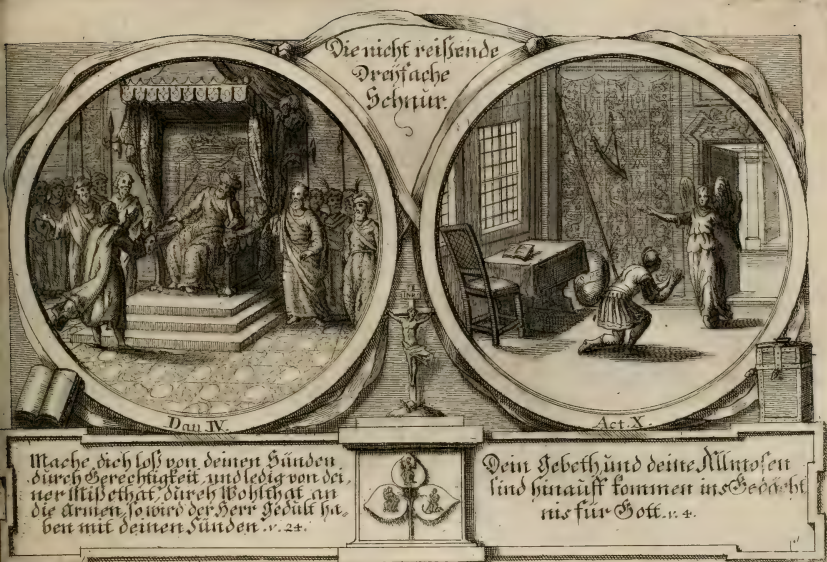 Die nicht reissende
Dreyfache
Schnur.
INRI
Dan IV.
Act. X.
Mache dich loß von deinen Sünden
durch Gerechtigkeit, und ledig von dei
ner Mißethat, durch Wohlthat an
die Armen, so wird der Herr Gedult ha,
ben mit deinen Sünden. v. 24.
Dein Gebeth und deine Allmosen
sind hinauff kommen ins Gedächt
nis für Gott. v. 4.